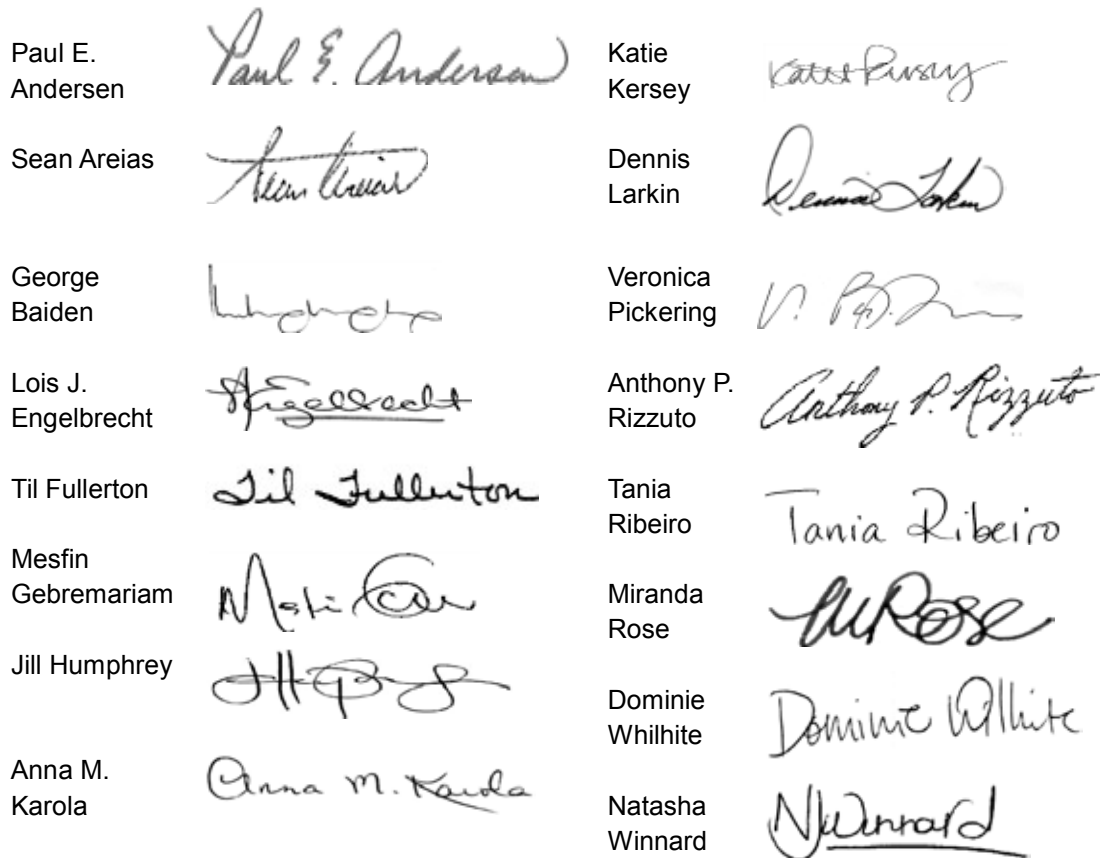 Paul E.
Andersen
Paul E. Andersen
Sean Areias
Sean Areias
George
Baiden
Lois J.
Engelbrecht
Engelbrecht
Til Fullerton
Til Fullerton
Mesfin
Gebremariam
Jill Humphrey
Anna M.
Karola
Anna M. Karola
Katie
Kersey
Katie Kersey
Dennis
Larkin
Dennis Larkin
Veronica
Pickering
V.
Anthony P.
Rizzuto
Anthony P. Rizzuto
Tania
Ribeiro
Tania Ribeiro
Miranda
Rose
MRose
Dominie
Whilhite
Dominie Wilhite
Natasha
Winnard
NJWinnard